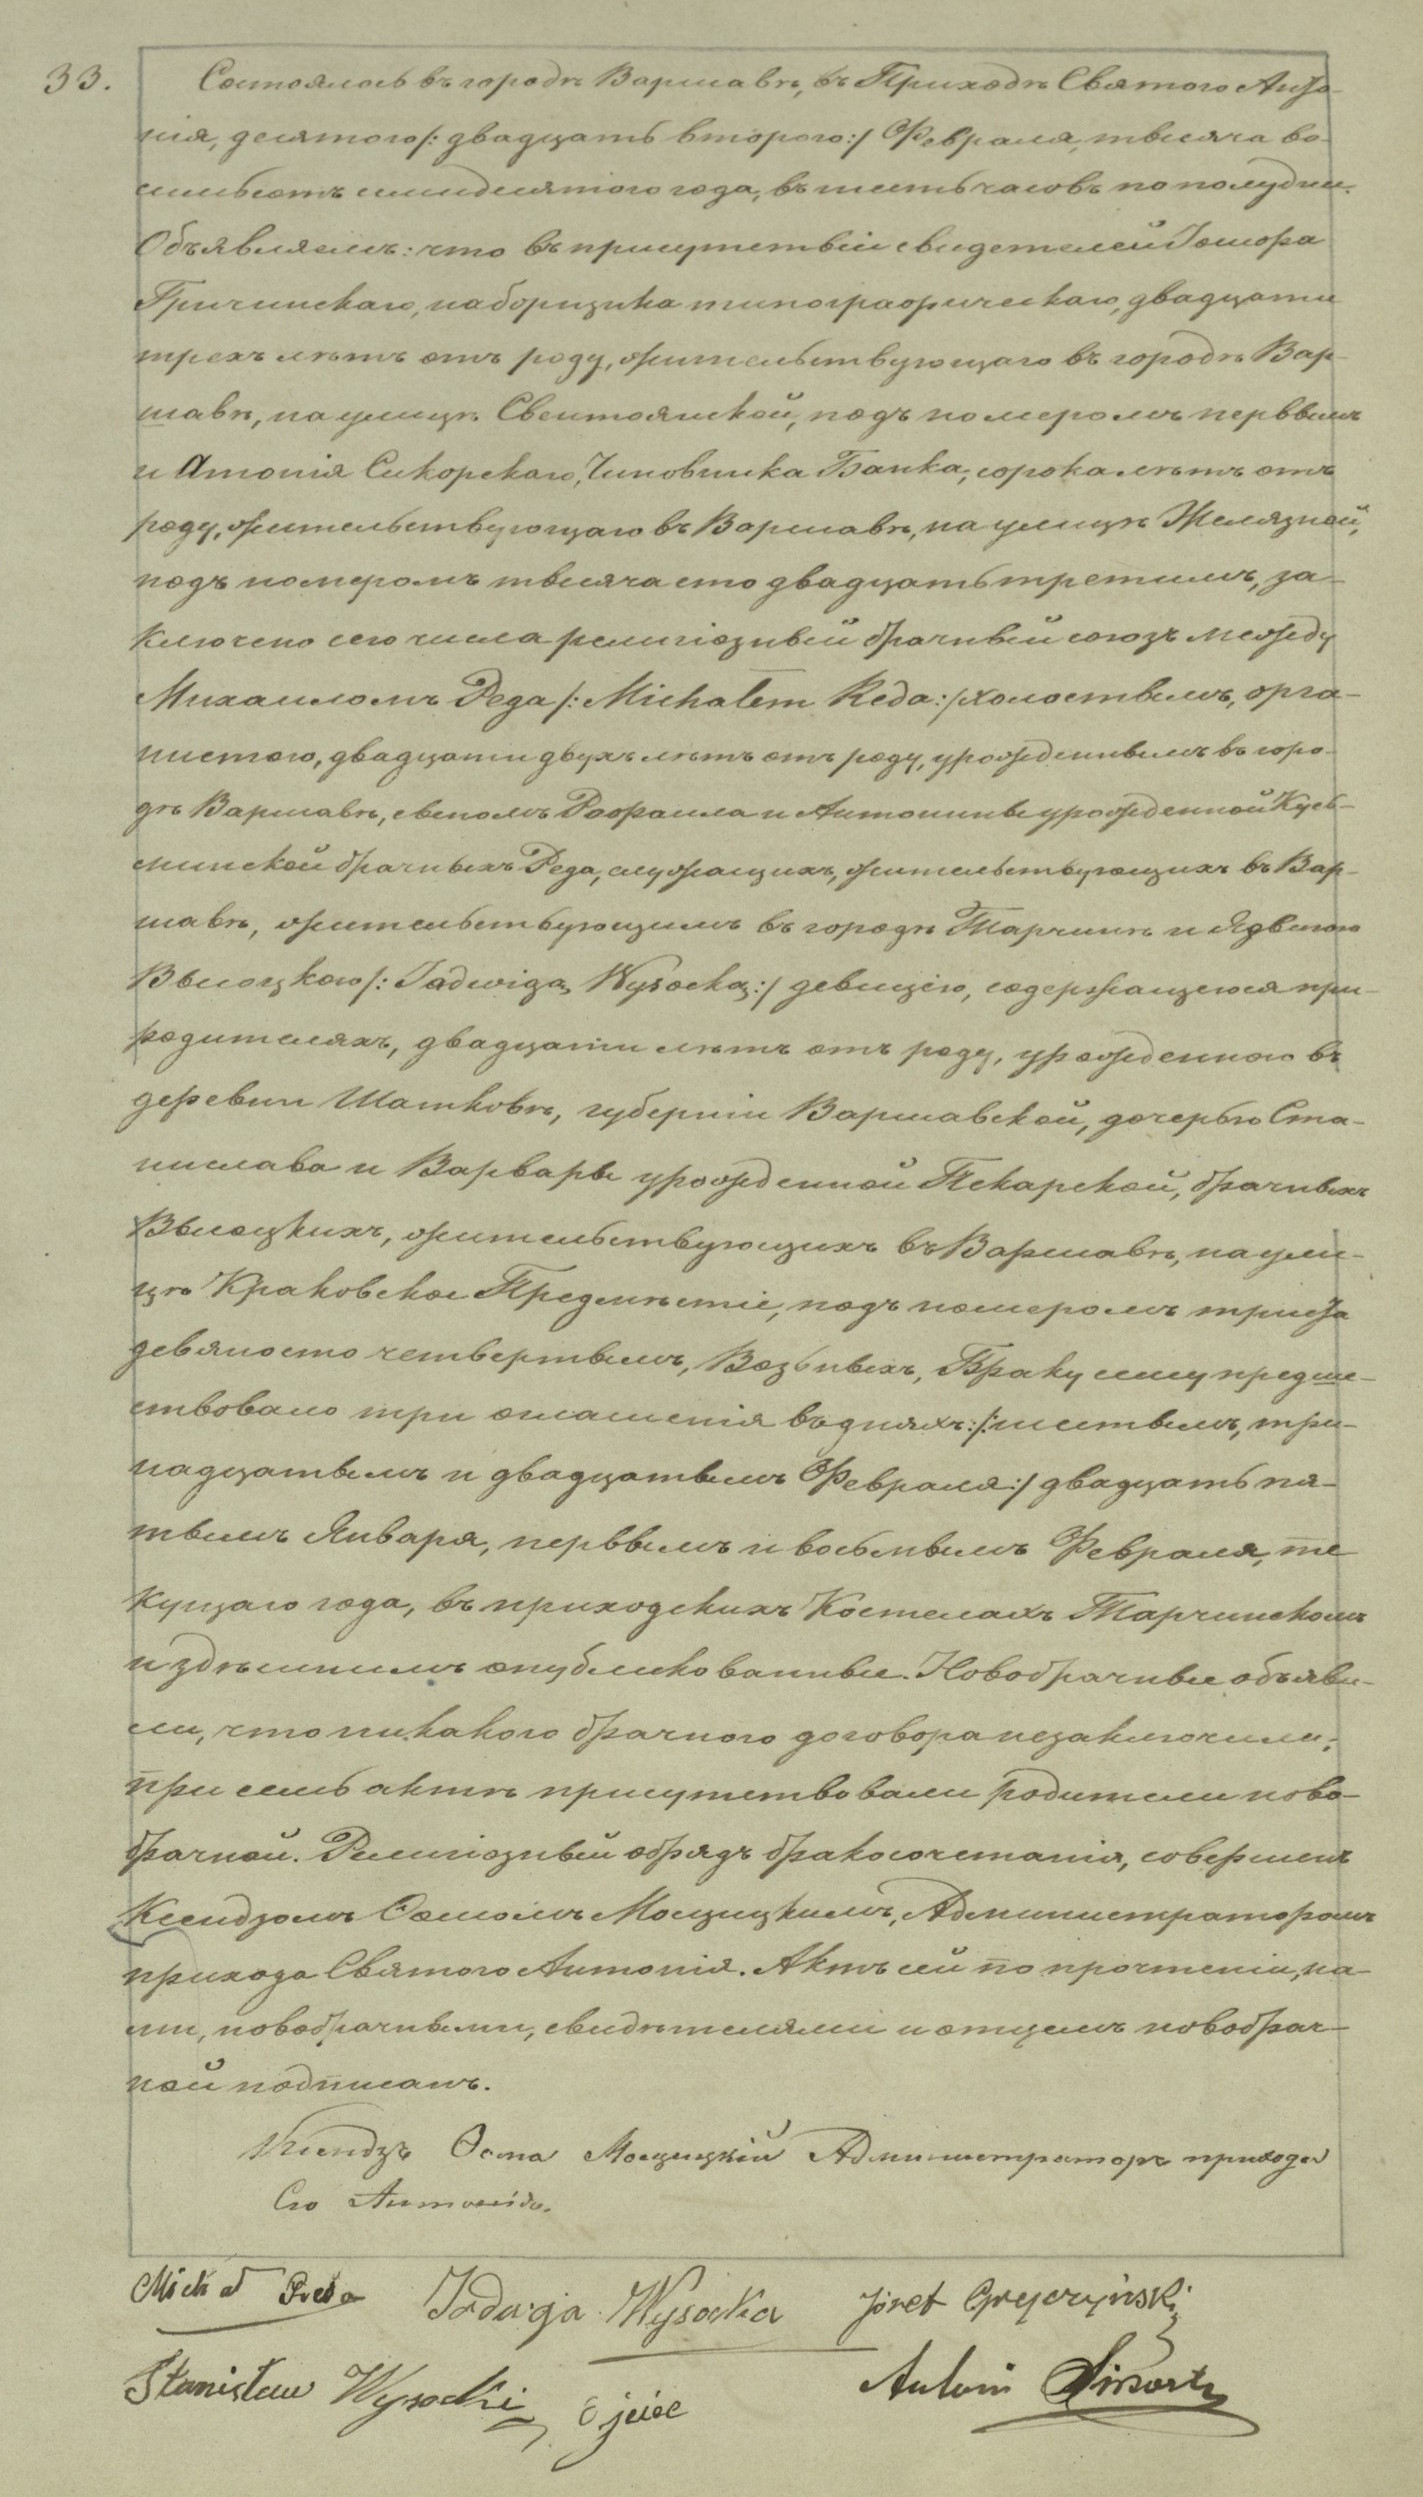 33.
Состоялось въ городѣ Варшавѣ, въ Приходѣ Святаго Анто-
нія, десятого /: двадцать второго :/ Февраля, тысяча во-
семьсотъ семидесятого года, въ шесть часовъ по полудни.
Объявляемъ: что въ присутствіи свидетелей Іосифа
Гричинскаго, наборщика типографическаго, двадцати
трехъ лѣтъ отъ роду, жительствующаго въ городѣ Вар-
шавѣ, на улицѣ Свентоянской, подъ номеромъ первымъ
и Атонія Сикорскаго, Чиновника Банка, сорока лѣтъ отъ
роду, жительствующаго въ Варшавѣ, на улицѣ Желязной,
подъ номеромъ тысяча сто двадцать третимъ, за-
ключено сего числа религіозный брачный союзъ между
Михаиломъ Реда /: Michałem Reda :/ холостымъ, орга-
нистою, двадцати двухъ лѣтъ отъ роду, урожденнымъ въ горо-
дѣ Варшавѣ, сыномъ Рафаила и Антонины урожденной Кусь-
минской брачныхъ Реда, служащихъ, жительствующихъ въ Вар-
шавѣ, жительствующимъ въ городѣ Тарчинѣ и Ядвигою
Высоцкою /: Jadwigą Wysocką :/ девицею, содержащеюся при
родителяхъ, двадцати лѣтъ отъ роду, урожденною въ
деревни Шатковѣ, губерніи Варшавской, дочерью Ста-
нислава и Варвары урожденной Пекарской, брачныхъ
Высоцкихъ, жительствующихъ въ Варшавѣ, на ули-
цѣ Краковское Предмѣстіе, подъ номеромъ триста
девяносто четвертымъ, Возьныхъ, Браку сему предше-
ствовало три оглашенія въ дняхъ: /: шестымъ, три-
надцатымъ и двадцатымъ Февраля :/ двадцать пя-
тымъ Января, первымъ и восьмымъ Февраля, те
кущаго года, въ приходскихъ Костелахъ Тарчинскомъ
и здѣшнимъ опубликованные. Новобрачные объяви-
ли, что никакого брачного договора незаключили;
при семъ актѣ присутствовали родители ново-
брачной. Религіозный обрядъ бракосочетанія, совершенъ
Ксендзомъ Фомомъ Мощицкимъ, Администраторомъ
прихода Святого Антонія. Актъ сей по прочтеніи, на-
ми, новобрачными, свидѣтелями и отцемъ новобрач-
ной подписанъ.
Ксендзъ Фома Мощицкій Администраторъ прихода
Сго Антонія.
Michał Reda Jadwiga Wysocka Józef Gryczyński
Stanisław Wysocki Ojciec Antoni